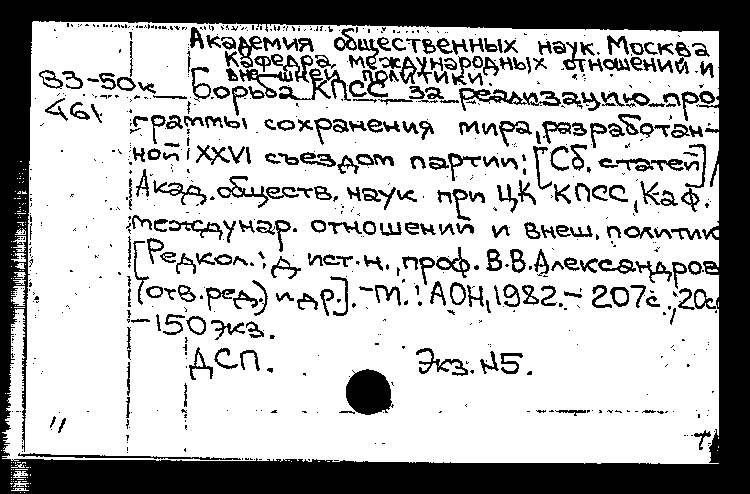 Академия общественных наук. Москва
Кафедра международных отношений и
внешней политики.
83-50к Борьба КПСС за реализацию про-
461
граммы сохранения мира, разработан-
ной XXVI съездом партии: [Сб. статей] /
Акад. обществ. наук при ЦК КПСС, Каф.
междунар. отношений и внеш. политик
[Редкол.: д. ист. н., проф. В.В. Александров
(отв. ред.) и др.]. - М.: АОН, 1982. - 207 с.; 20 см
- 150 экз.
ДСП. Экз. №5.